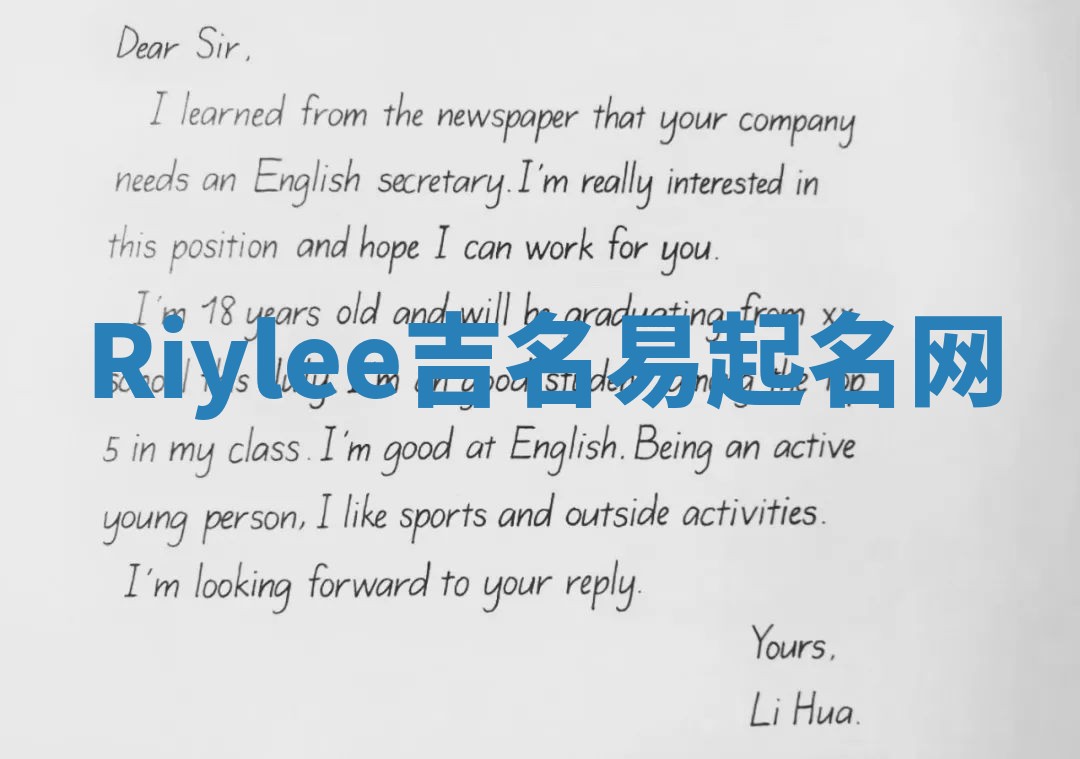 Dear Sir,
I learned from the newspaper that your company
needs an English secretary. I'm really interested in
this position and hope I can work for you.
I'm 18 years old and will be graduating from xx
Riylee吉名易起名网
school this July. I'm good student among the top
5 in my class. I'm good at English. Being an active
young person, I like sports and outside activities.
I'm looking forward to your reply.
Yours,
Li Hua.